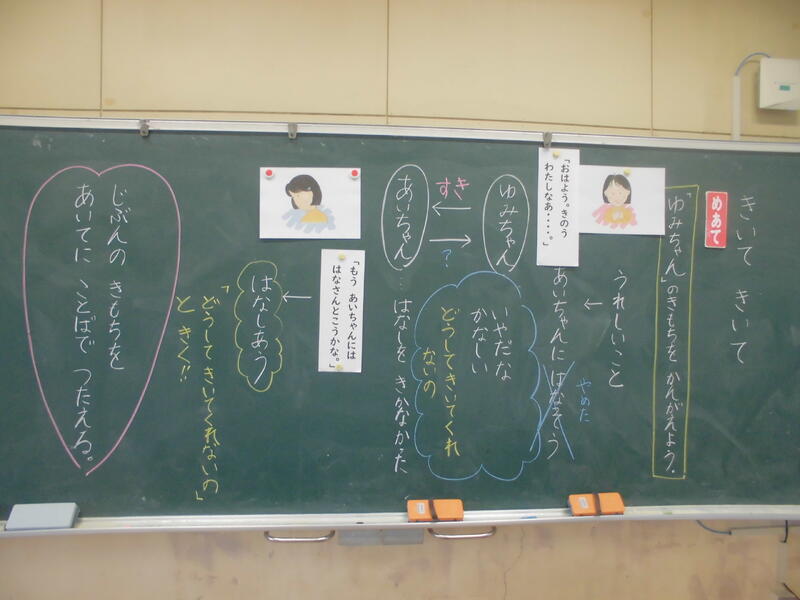 きいて きいて
めあて
「ゆみちゃん」のきもちを かんがえよう。
「おはよう。きのう
わたしなあ・・・・。」
うれしいこと
↓
あいちゃんに はなそう
やめた
ゆみちゃん
すき
←
→
?
あいちゃん
いやだな
かなしい
どうしてきいてくれ
ないの
… はなしを きかなかった
「もう あいちゃんには
はなさんとこうかな。」
←
はなしあう
「どうしてきいてくれないの」
と きく!!
じぶんの きもちを
あいてに ことばで つたえる。